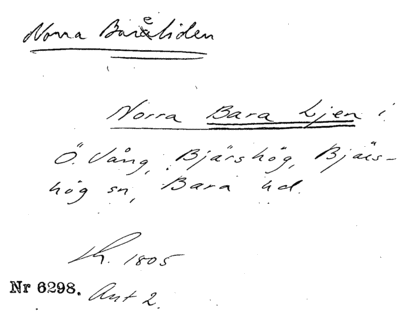 Norra Baraliden
Norra Bara Ljen i
Ö. Vång, Bjärshög, Bjärs-
hög sn, Bara hd.
Lh. 1805
Nr 6298. Akt 2.